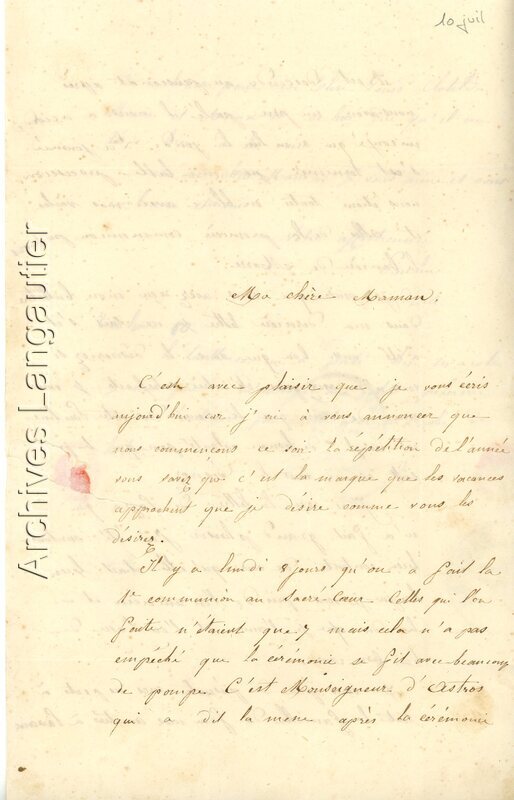 10 juil
Archives Langautier
Ma chère Maman,
C'est avec plaisir que je vous écris
aujourd'hui car j'ai à vous annoncer que
nous commençons ce soir la répétition de l'année
vous savez que c'est la marque que les vacances
approchent que je désire comme vous les
désirez.
Il y a lundi 8 jours qu'on a fait la
1re communion au Sacré Cœur Celles qui l'on
faite n'étaient que 7 mais cela n'a pas
empêché que la cérémonie se fit avec beaucoup
de pompe C'est Monseigneur d'Astros
qui a dit la messe après la cérémonie